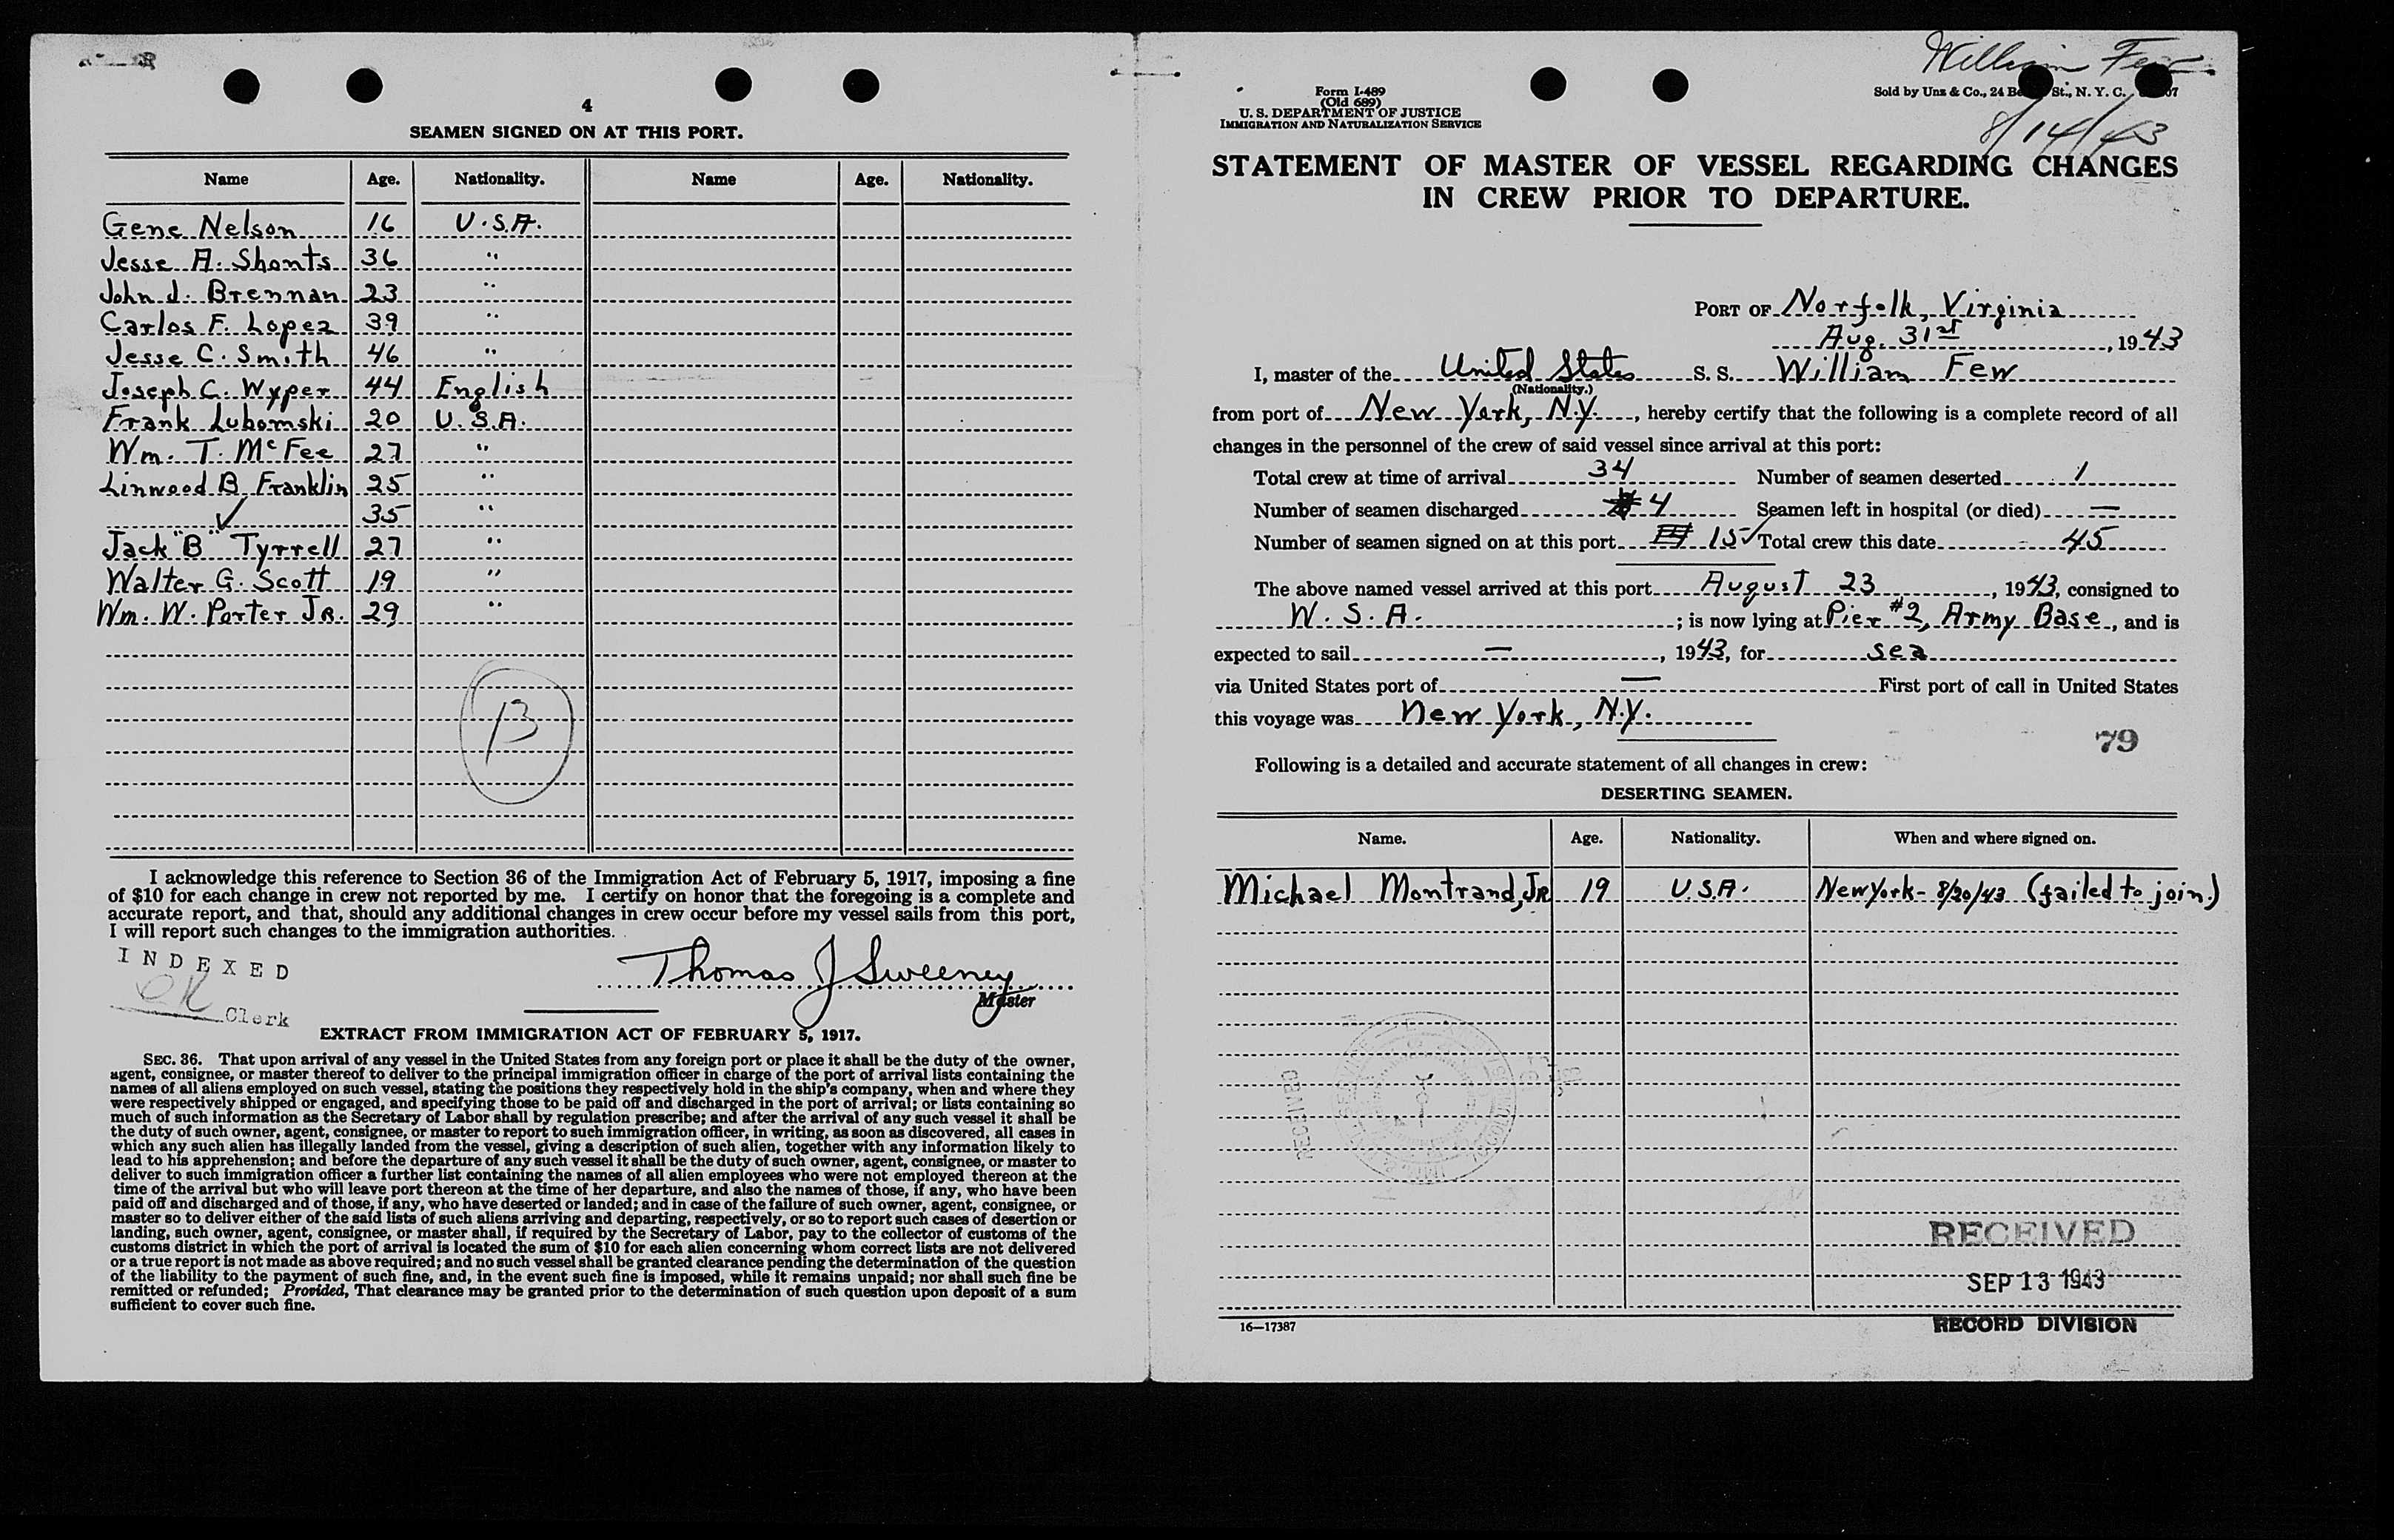 4
SEAMEN SIGNED ON AT THIS PORT.
Name Age. Nationality. Name Age. Nationality.
Gene Nelson 16 U.S.A.
Jesse A. Shonts 36 "
John J. Brennan 23 "
Carlos F. Lopez 39 "
Jesse C. Smith 46 "
Joseph C. Wyper 44 English
Frank Lubomski 20 U.S.A.
Wm. T. McFee 27 "
Linwood B. Franklin 25 "
✓ 35 "
Jack "B" Tyrrell 27 "
Walter G. Scott 19 "
Wm. W. Porter JR. 29 "
13
I acknowledge this reference to Section 36 of the Immigration Act of February 5, 1917, imposing a fine
of $10 for each change in crew not reported by me. I certify on honor that the foregoing is a complete and
accurate report, and that, should any additional changes in crew occur before my vessel sails from this port,
I will report such changes to the immigration authorities.
INDEXED
Clerk
Thomas J Sweeney
Master
EXTRACT FROM IMMIGRATION ACT OF FEBRUARY 5, 1917.
SEC. 36. That upon arrival of any vessel in the United States from any foreign port or place it shall be the duty of the owner,
agent, consignee, or master thereof to deliver to the principal immigration officer in charge of the port of arrival lists containing the
names of all aliens employed on such vessel, stating the positions they respectively hold in the ship's company, when and where they
were respectively shipped or engaged, and specifying those to be paid off and discharged in the port of arrival; or lists containing so
much of such information as the Secretary of Labor shall by regulation prescribe; and after the arrival of any such vessel it shall be
the duty of such owner, agent, consignee, or master to report to such immigration officer, in writing, as soon as discovered, all cases in
which any such alien has illegally landed from the vessel, giving a description of such alien, together with any information likely to
lead to his apprehension; and before the departure of any such vessel it shall be the duty of such owner, agent, consignee, or master to
deliver to such immigration officer a further list containing the names of all alien employees who were not employed thereon at the
time of the arrival but who will leave port thereon at the time of her departure, and also the names of those, if any, who have been
paid off and discharged and of those, if any, who have deserted or landed; and in case of the failure of such owner, agent, consignee, or
master so to deliver either of the said lists of such aliens arriving and departing, respectively, or so to report such cases of desertion or
landing, such owner, agent, consignee, or master shall, if required by the Secretary of Labor, pay to the collector of customs of the
customs district in which the port of arrival is located the sum of $10 for each alien concerning whom correct lists are not delivered
or a true report is not made as above required; and no such vessel shall be granted clearance pending the determination of the question
of the liability to the payment of such fine, and, in the event such fine is imposed, while it remains unpaid; nor shall such fine be
remitted or refunded; Provided, That clearance may be granted prior to the determination of such question upon deposit of a sum
sufficient to cover such fine.
William Few
8/14/43
Form I-489
(Old 689)
U. S. DEPARTMENT OF JUSTICE
IMMIGRATION AND NATURALIZATION SERVICE
Sold by Unz & Co., 24 St., N. Y. C.
STATEMENT OF MASTER OF VESSEL REGARDING CHANGES
IN CREW PRIOR TO DEPARTURE.
PORT OF Norfolk, Virginia
Aug. 31st, 1943
I, master of the United States S. S. William Few
(Nationality.)
from port of New York, N.Y., hereby certify that the following is a complete record of all
changes in the personnel of the crew of said vessel since arrival at this port:
Total crew at time of arrival 34 Number of seamen deserted 1
Number of seamen discharged 4 Seamen left in hospital (or died) —
Number of seamen signed on at this port 15 ✓ Total crew this date 45
The above named vessel arrived at this port August 23, 1943, consigned to
W. S. A. ; is now lying at Pier #2, Army Base, and is
expected to sail —, 1943, for sea
via United States port of — First port of call in United States
this voyage was New York, N.Y.
79
Following is a detailed and accurate statement of all changes in crew:
DESERTING SEAMEN.
Name. Age. Nationality. When and where signed on.
Michael Montrand, JR 19 U.S.A. New York - 8/20/43 (failed to join.)
RECEIVED
RECEIVED
SEP 13 1943
RECORD DIVISION
16—17387